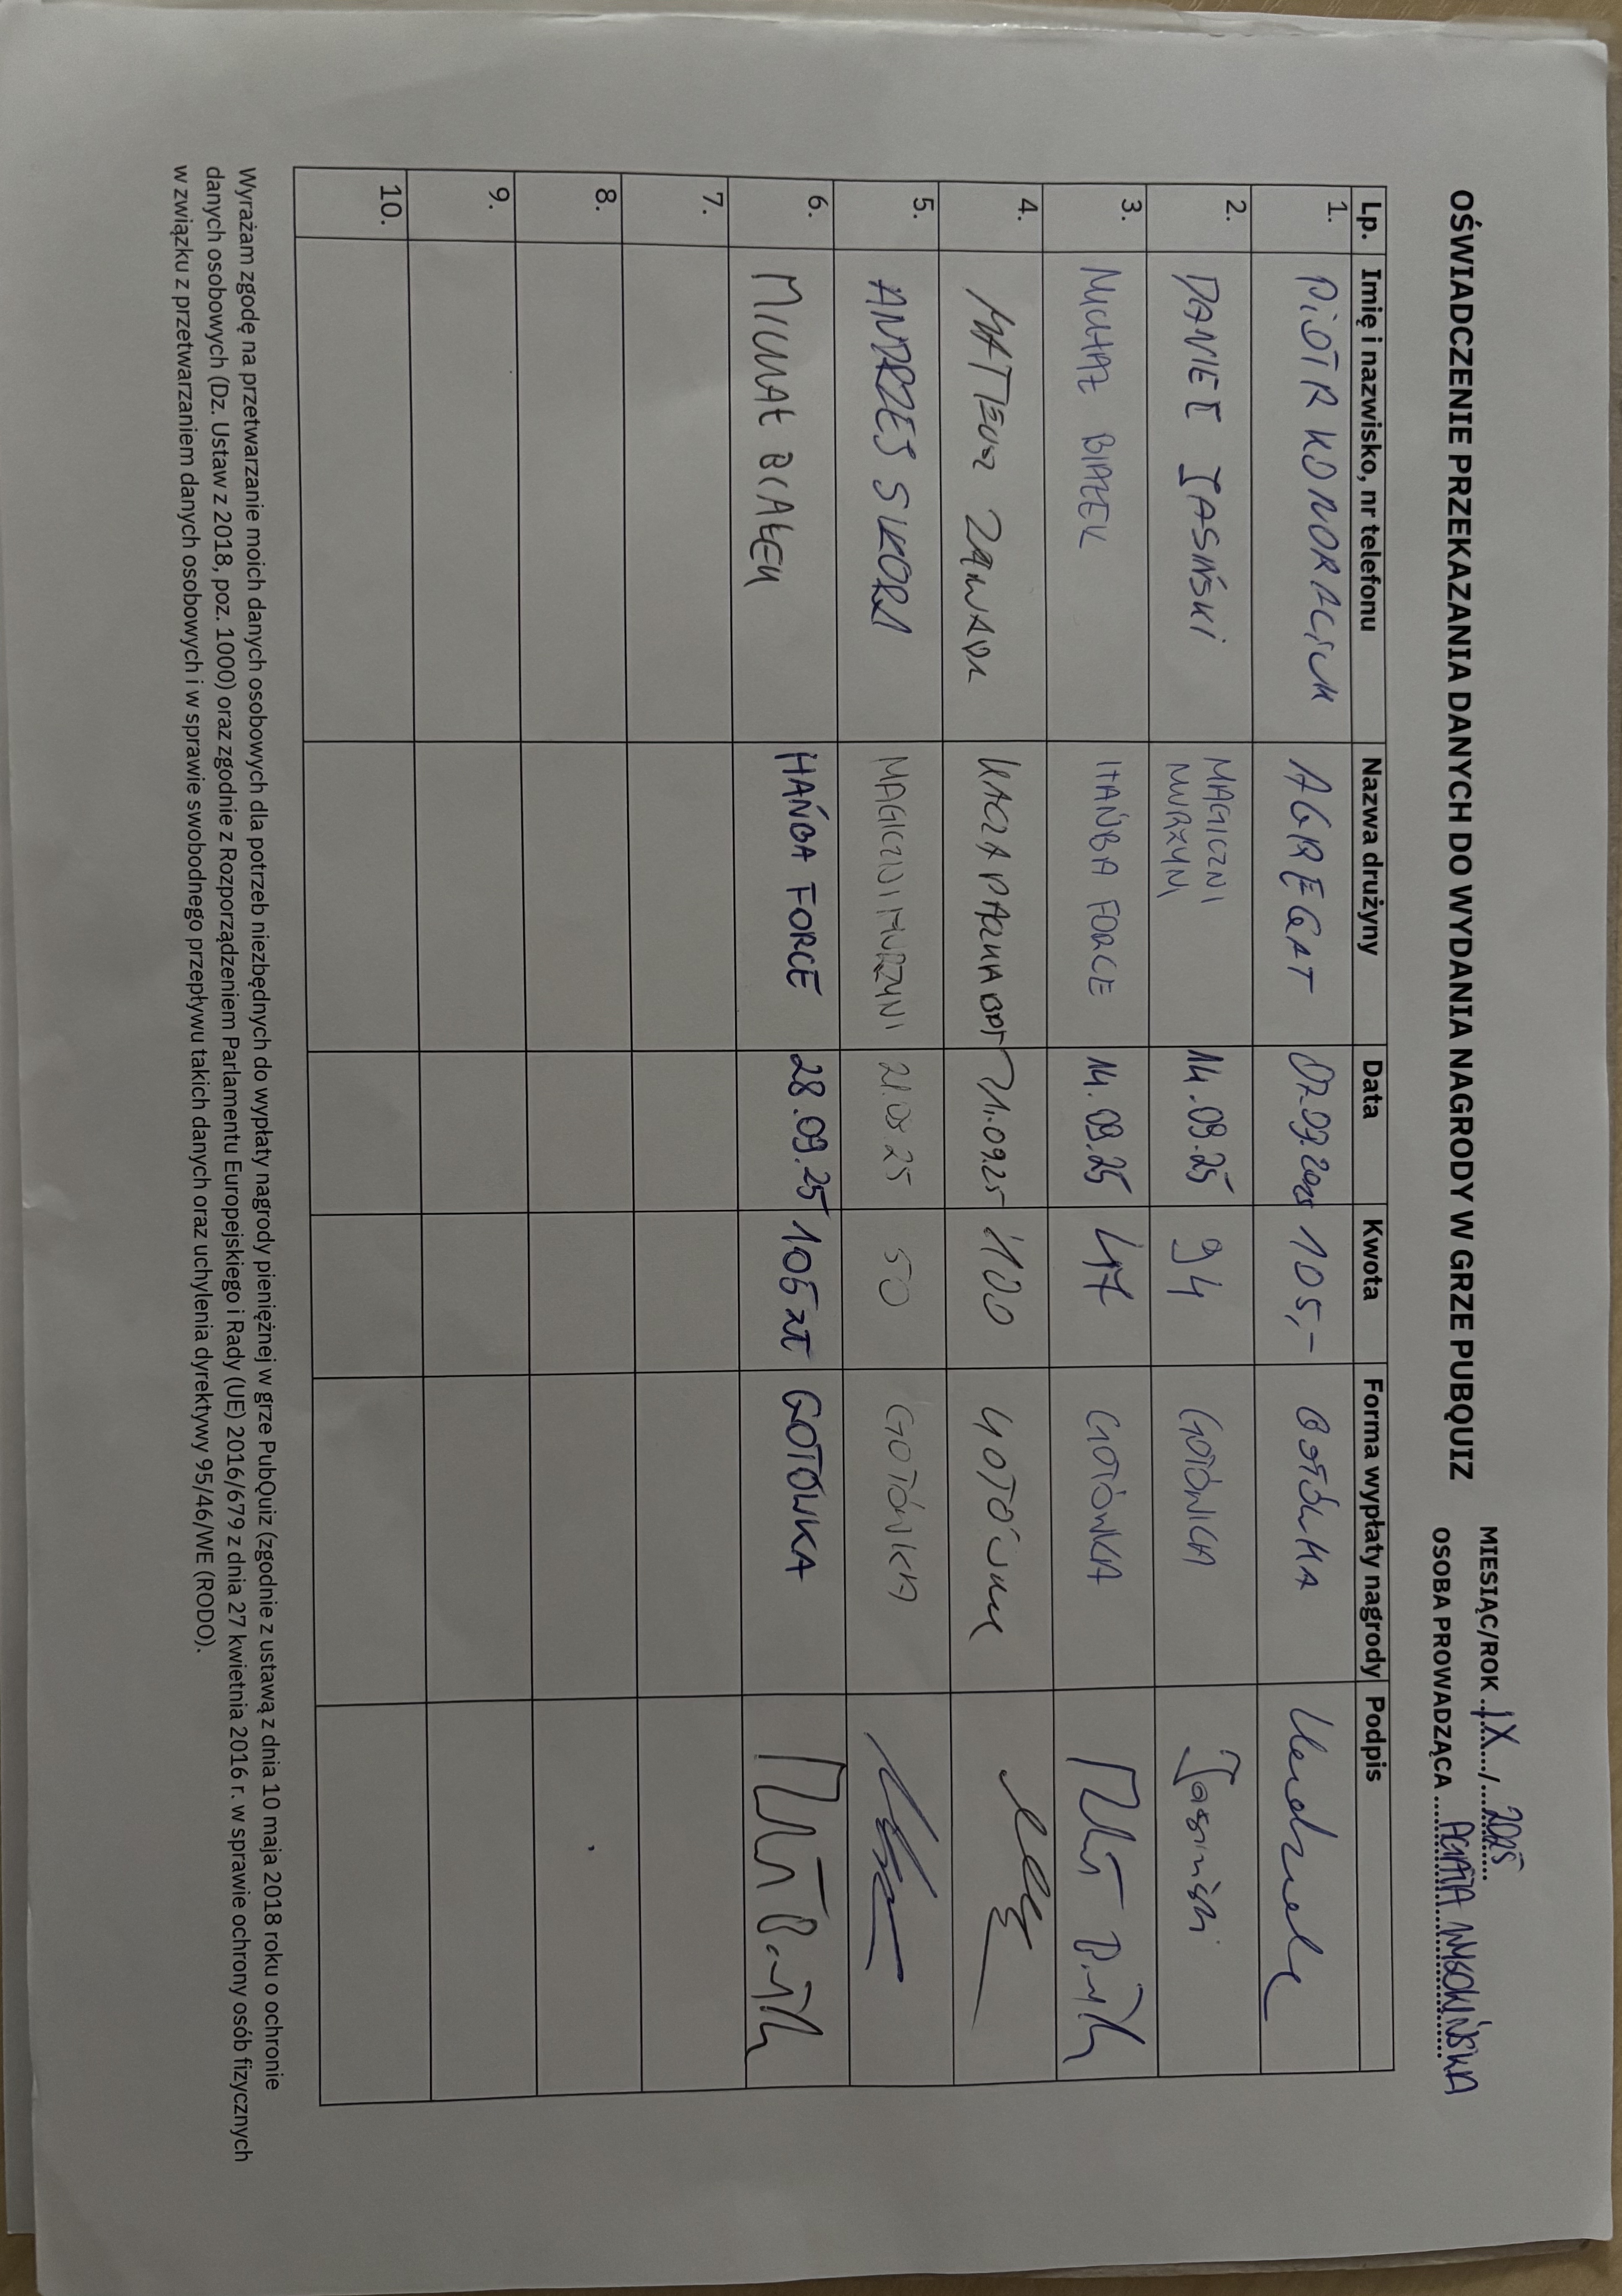 OŚWIADCZENIE PRZEKAZANIA DANYCH DO WYDANIA NAGRODY W GRZE PUBQUIZ
MIESIĄC/ROK IX / 2025
OSOBA PROWADZĄCA AGATA WYSOKIŃSKA
Lp. Imię i nazwisko, nr telefonu Nazwa drużyny Data Kwota Forma wypłaty nagrody Podpis
1. PIOTR AGREGAT 07.09.2025 105,- GOTÓWKA
2. DANIEL JASIŃSKI MAGICZNI MURZYNI 14.09.25 94 GOTÓWKA Jasiński
3. MICHAŁ BIAŁEK HAŃBA FORCE 14.09.25 47 GOTÓWKA
4. MATEUSZ ZAWADA KACZA PACZKA 21.09.25 100 GOTÓWKA
5. ANDRZEJ SIKORA MAGICZNI MURZYNI 21.09.25 50 GOTÓWKA
6. MICHAŁ BIAŁEK HAŃBA FORCE 28.09.25 105 zł GOTÓWKA
7.
8.
9.
10.
Wyrażam zgodę na przetwarzanie moich danych osobowych dla potrzeb niezbędnych do wypłaty nagrody pieniężnej w grze PubQuiz (zgodnie z ustawą z dnia 10 maja 2018 roku o ochronie
danych osobowych (Dz. Ustaw z 2018, poz. 1000) oraz zgodnie z Rozporządzeniem Parlamentu Europejskiego i Rady (UE) 2016/679 z dnia 27 kwietnia 2016 r. w sprawie ochrony osób fizycznych
w związku z przetwarzaniem danych osobowych i w sprawie swobodnego przepływu takich danych oraz uchylenia dyrektywy 95/46/WE (RODO).